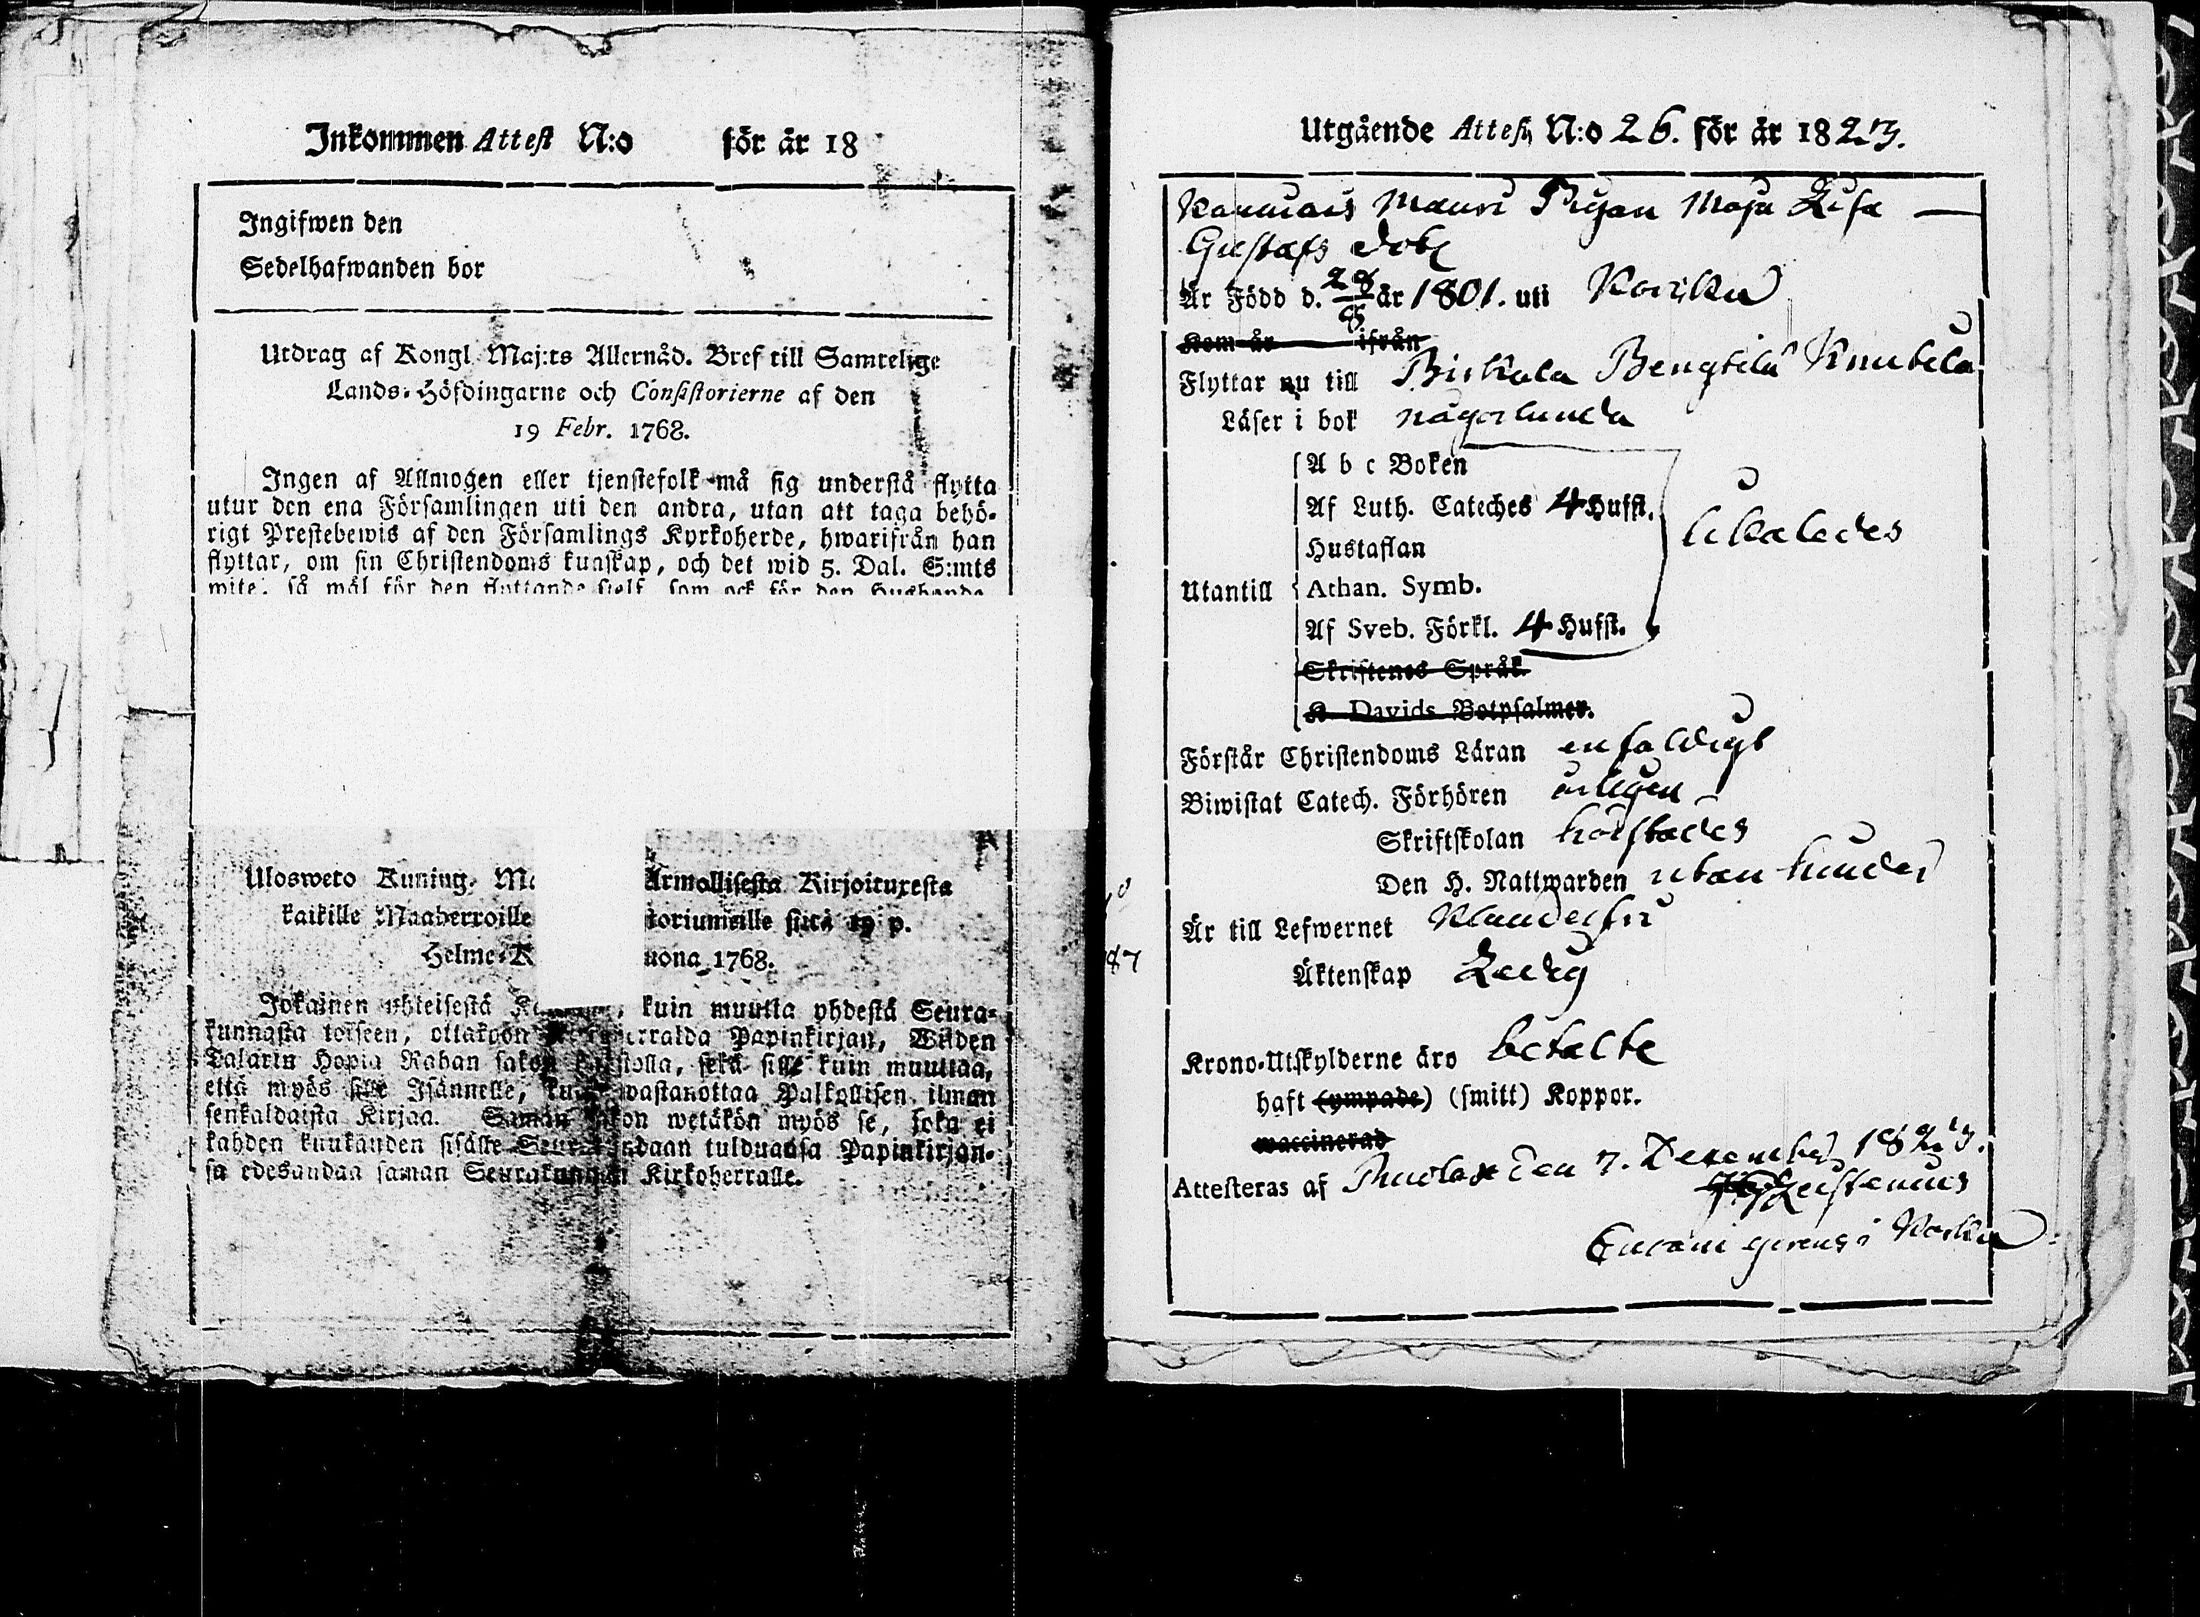 Inkommen Attest N:o för år 18
Ingifwen den
Sedelhafwanden bor
Utdrag af Kongl. Maj:ts Allernåd. Bref till Samtelige
Lands-Höfdingarne och Consistorierne af den
19 Febr. 1768.
Ingen af Allmogen eller tjenstefolk må sig understå flytta
utur den ena Församlingen uti den andra, utan att taga behö-
rigt Prestebewis af den Församlings Kyrkoherde, hwarifrån han
flyttar, om sin Christendoms kunskap, och det wid 5. Dal. S:mts
wite, så wäl för den flyttande sielf, som ock för den Husbonde,
Ulosweto Kuning. Armollisesta Kirjoituxesta
kaikille Maaherroille toriumeille siitä 19 p.
Helme-K uona 1768.
Jokainen yhteisestä kuin muutta yhdestä Seura-
kunnasta toiseen, ottakoon erralda Papinkirjan, Wiiden
Talarin Hopia Rahan sakon stolla, sekä sille kuin muuttaa,
että myös sille Isännelle, wastanottaa Palkollisen ilman
senkaldaista Kirjaa. Saman wetäkön myös se, joka ei
kahden kuukauden sisälle tulduansa Papinkirjan-
sa edesandaa saman Seurakunnan Kirkoherralle.
Utgående Attest N:o 26. för år 1823.
Mauri Pigan Maja Lisa
Gustafs dotr
Är Född d. 28/5 år 1801. uti Korsku
Kom år ifrån
Flyttar nu till Birkala Bengtilä Knutela
Läser i bok någorlunda
A b c Boken
Af Luth. Cateches 4 Hufst.
Hustaflan
likaledes
Utantill Athan. Symb.
Af Sveb. Förkl. 4 Hufst.
Skriftenes Språk
K. Davids Botpsalmer.
Förstår Christendoms Läran enfaldigt
Biwistat Catech. Förhören årligen
Skriftskolan
Den H. Nattwarden utan hinder
Är till Lefwernet klanderfri
Äktenskap Ledig
Krono-Utskylderne äro betalte
haft (ympade) (smitt) Koppor.
waccinerad
Attesteras af den 7. December 1823.